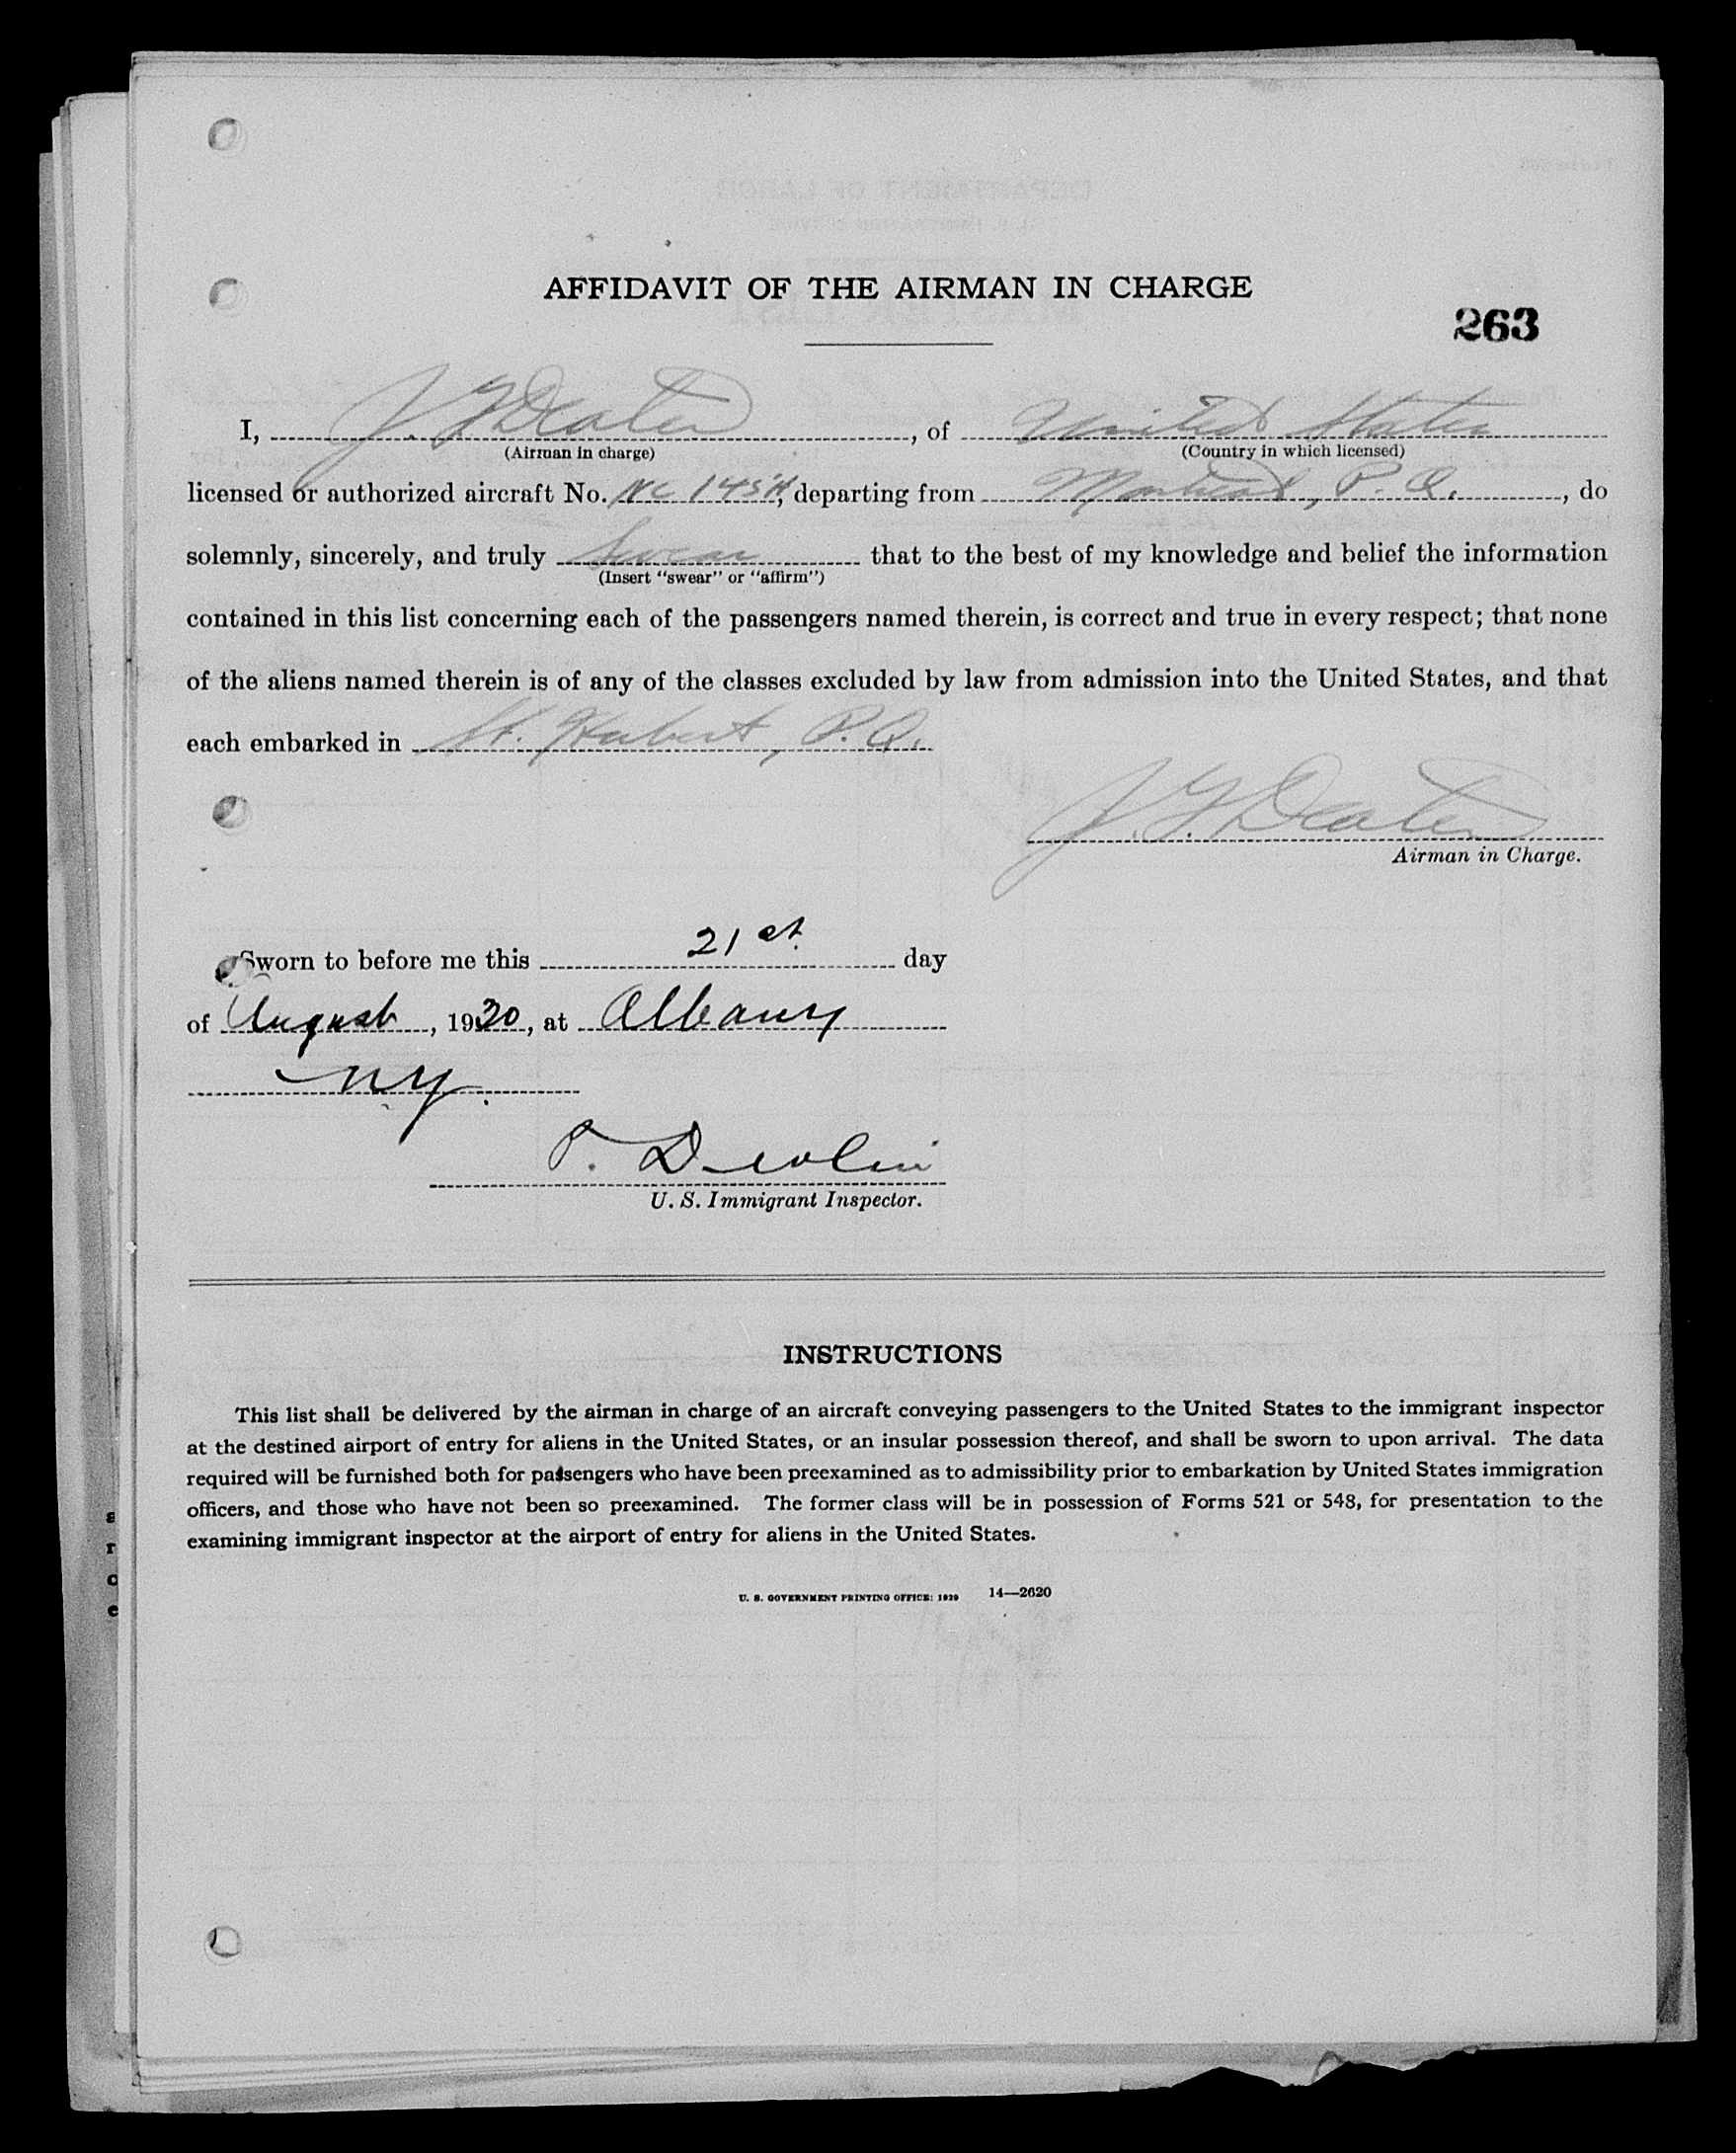 AFFIDAVIT OF THE AIRMAN IN CHARGE
263
I, J. G. Deater, of United States
(Airman in charge) (Country in which licensed)
licensed or authorized aircraft No. NC 145H, departing from Montreal, P. Q., do
solemnly, sincerely, and truly Swear that to the best of my knowledge and belief the information
(Insert "swear" or "affirm")
contained in this list concerning each of the passengers named therein, is correct and true in every respect; that none
of the aliens named therein is of any of the classes excluded by law from admission into the United States, and that
each embarked in St. Hubert, P.Q.
J. G. Deater
Airman in Charge.
Sworn to before me this 21st day
of August, 1930, at Albany
NY.
P. Devlin
U. S. Immigrant Inspector.
INSTRUCTIONS
This list shall be delivered by the airman in charge of an aircraft conveying passengers to the United States to the immigrant inspector
at the destined airport of entry for aliens in the United States, or an insular possession thereof, and shall be sworn to upon arrival. The data
required will be furnished both for passengers who have been preexamined as to admissibility prior to embarkation by United States immigration
officers, and those who have not been so preexamined. The former class will be in possession of Forms 521 or 548, for presentation to the
examining immigrant inspector at the airport of entry for aliens in the United States.
U. S. GOVERNMENT PRINTING OFFICE: 1929 14—2620